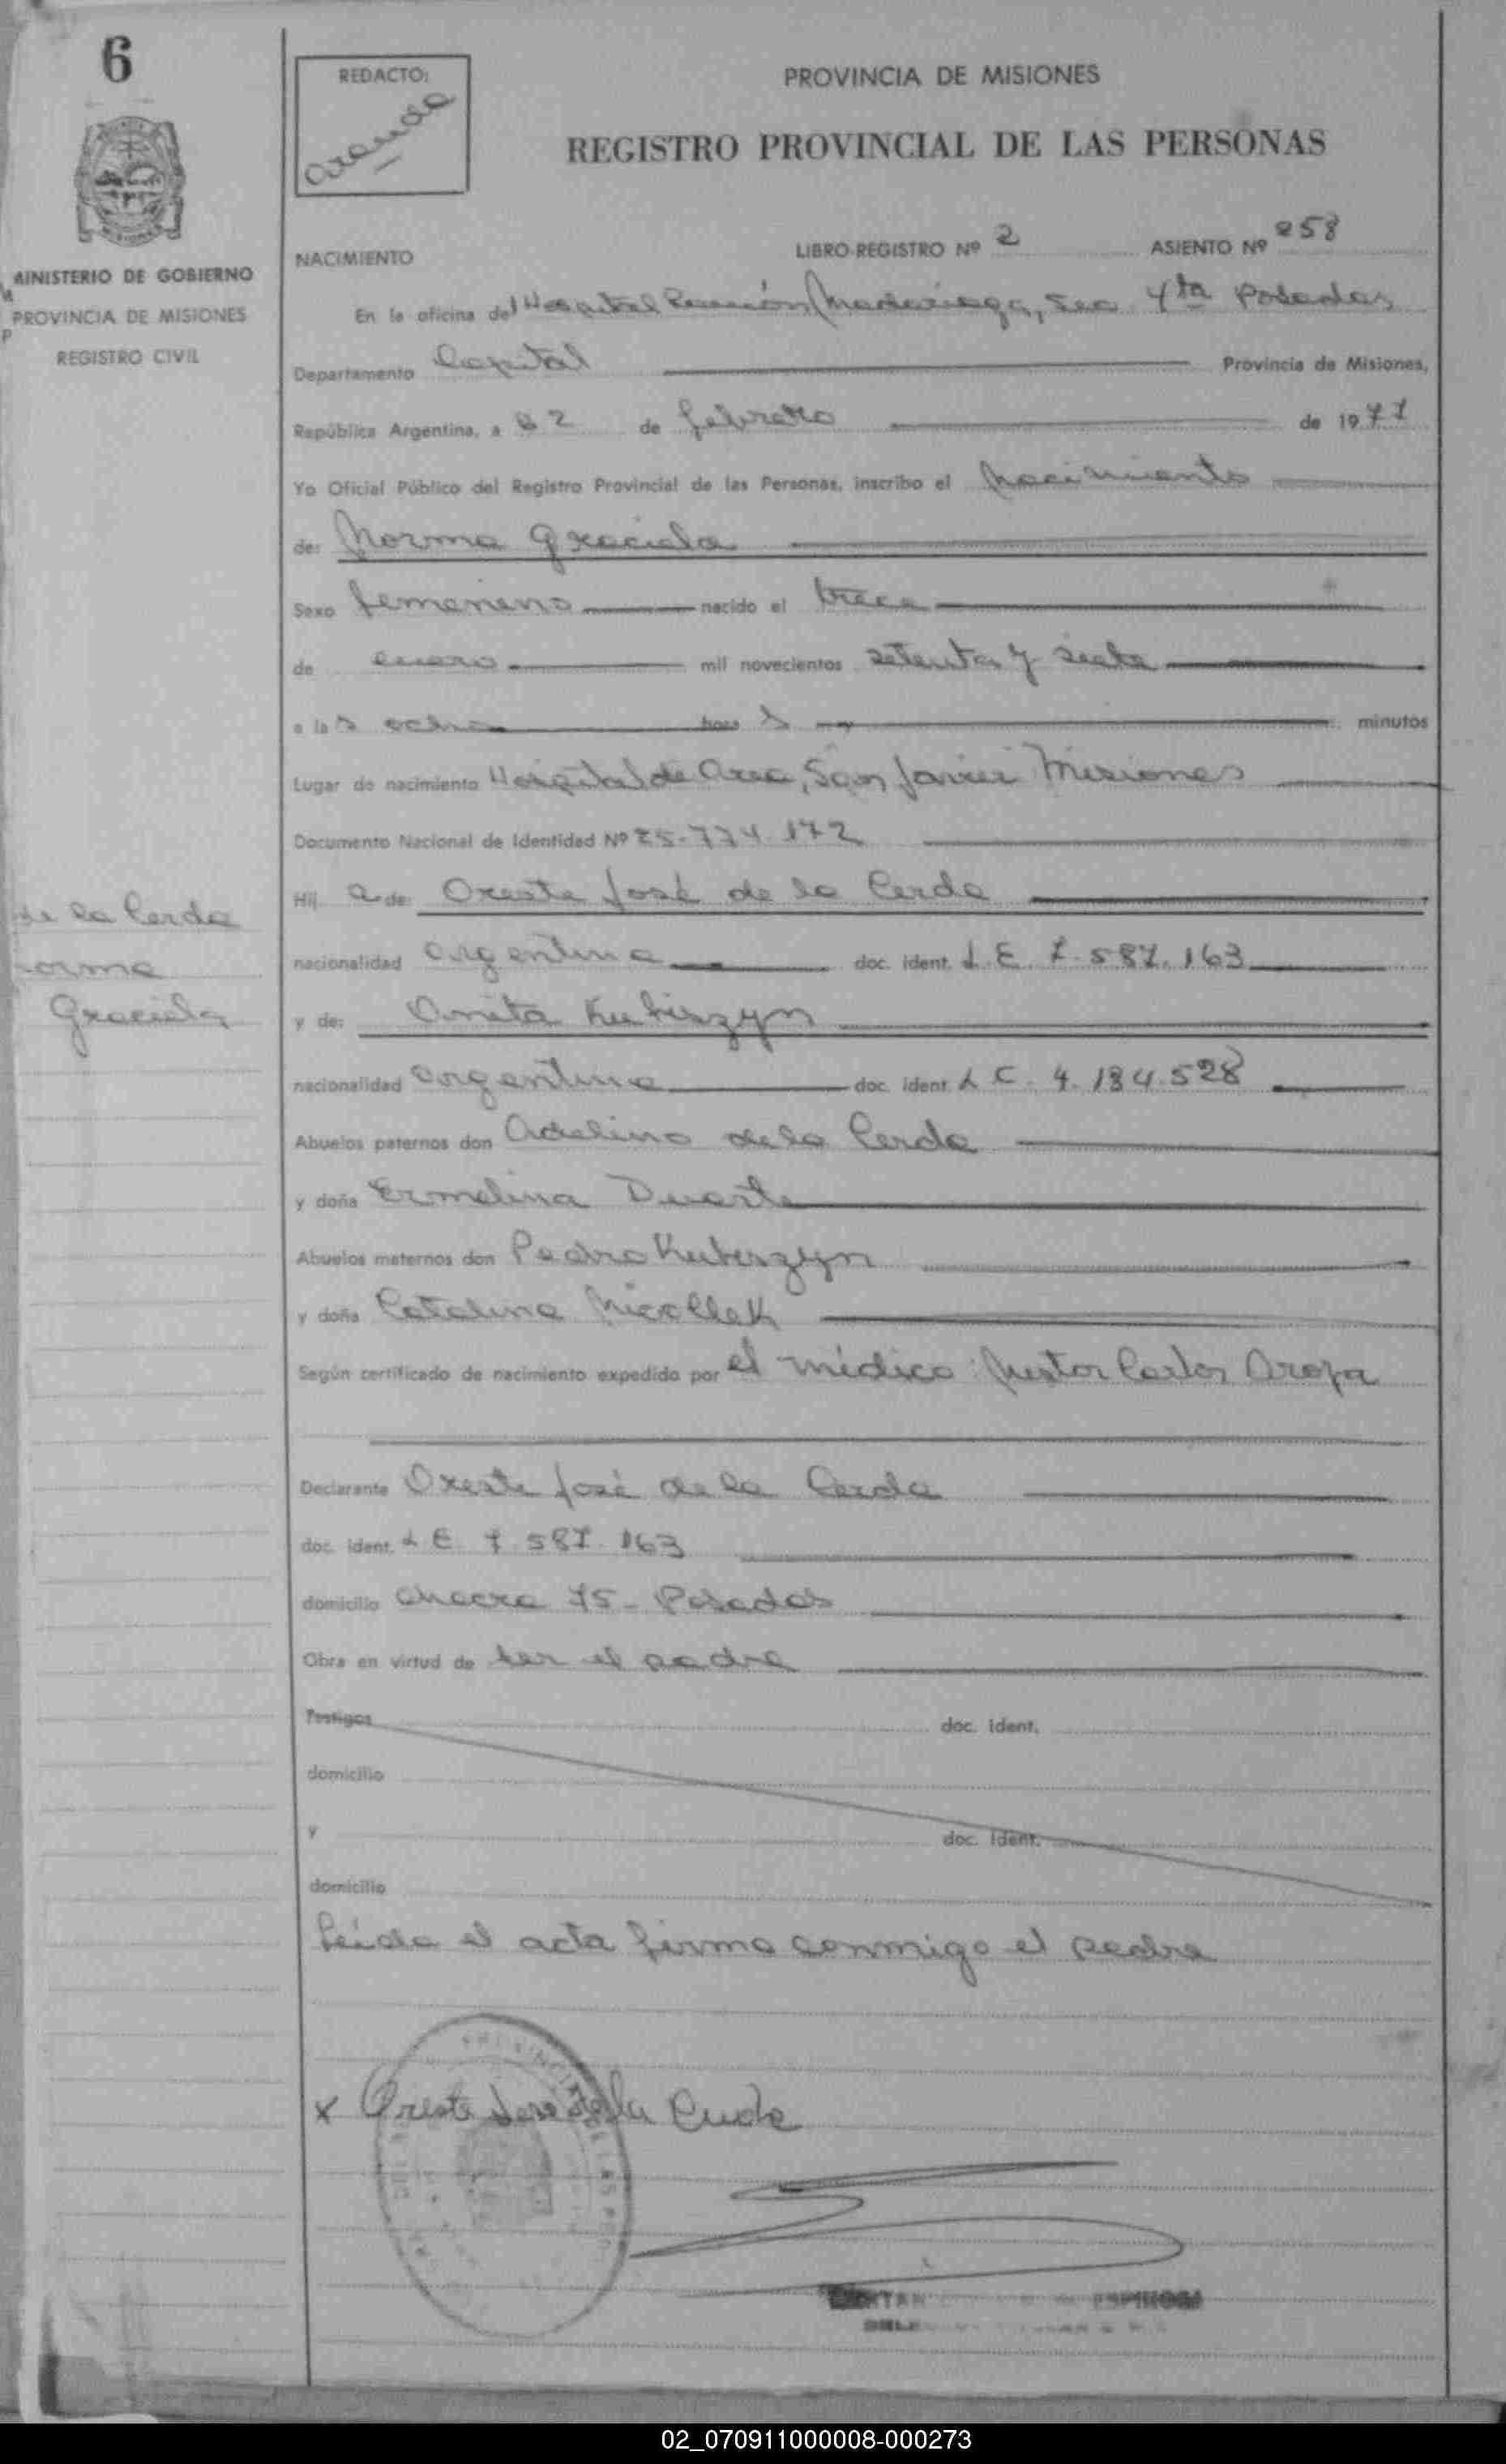 6
REDACTO:
Aranda
PROVINCIA DE MISIONES
REGISTRO PROVINCIAL DE LAS PERSONAS
MINISTERIO DE GOBIERNO
PROVINCIA DE MISIONES
REGISTRO CIVIL
NACIMIENTO LIBRO-REGISTRO Nº 2 ASIENTO Nº 258
En la oficina del Hospital Ramón Madariaga, Sec 4ta Posadas
Departamento Capital Provincia de Misiones,
República Argentina, a 2 de febrero de 1977
Yo Oficial Público del Registro Provincial de las Personas, inscribo el Nacimiento
de: Norma Graciela
Sexo femenino nacido el trece
de enero mil novecientos setenta y siete
a las ocho horas minutos
Lugar de nacimiento Hospital de Area, San Javier Misiones
Documento Nacional de Identidad Nº 25.774.172
Hija de: Oreste José de la Cerda
nacionalidad argentina doc. ident. L.E. 7.587.163
de la Cerda
Norma
Graciela
y de: Anita Kubiszyn
nacionalidad argentina doc. ident. L C. 4.184.528
Abuelos paternos don Adelino de la Cerda
y doña Ermelina Duarte
Abuelos maternos don Pedro Kubiszyn
y doña Catalina
Según certificado de nacimiento expedido por el médico: Carlos
Declarante Oreste José de la Cerda
doc. ident. L E 7.587.163
domicilio Chacra 75 - Posadas
Obra en virtud de ser el padre
Testigos doc. ident.
domicilio
y doc. ident.
domicilio
Leida el acta firma conmigo el padre
x Oreste Jose de la Cerda
ESPINOSA
02_070911000008-000273